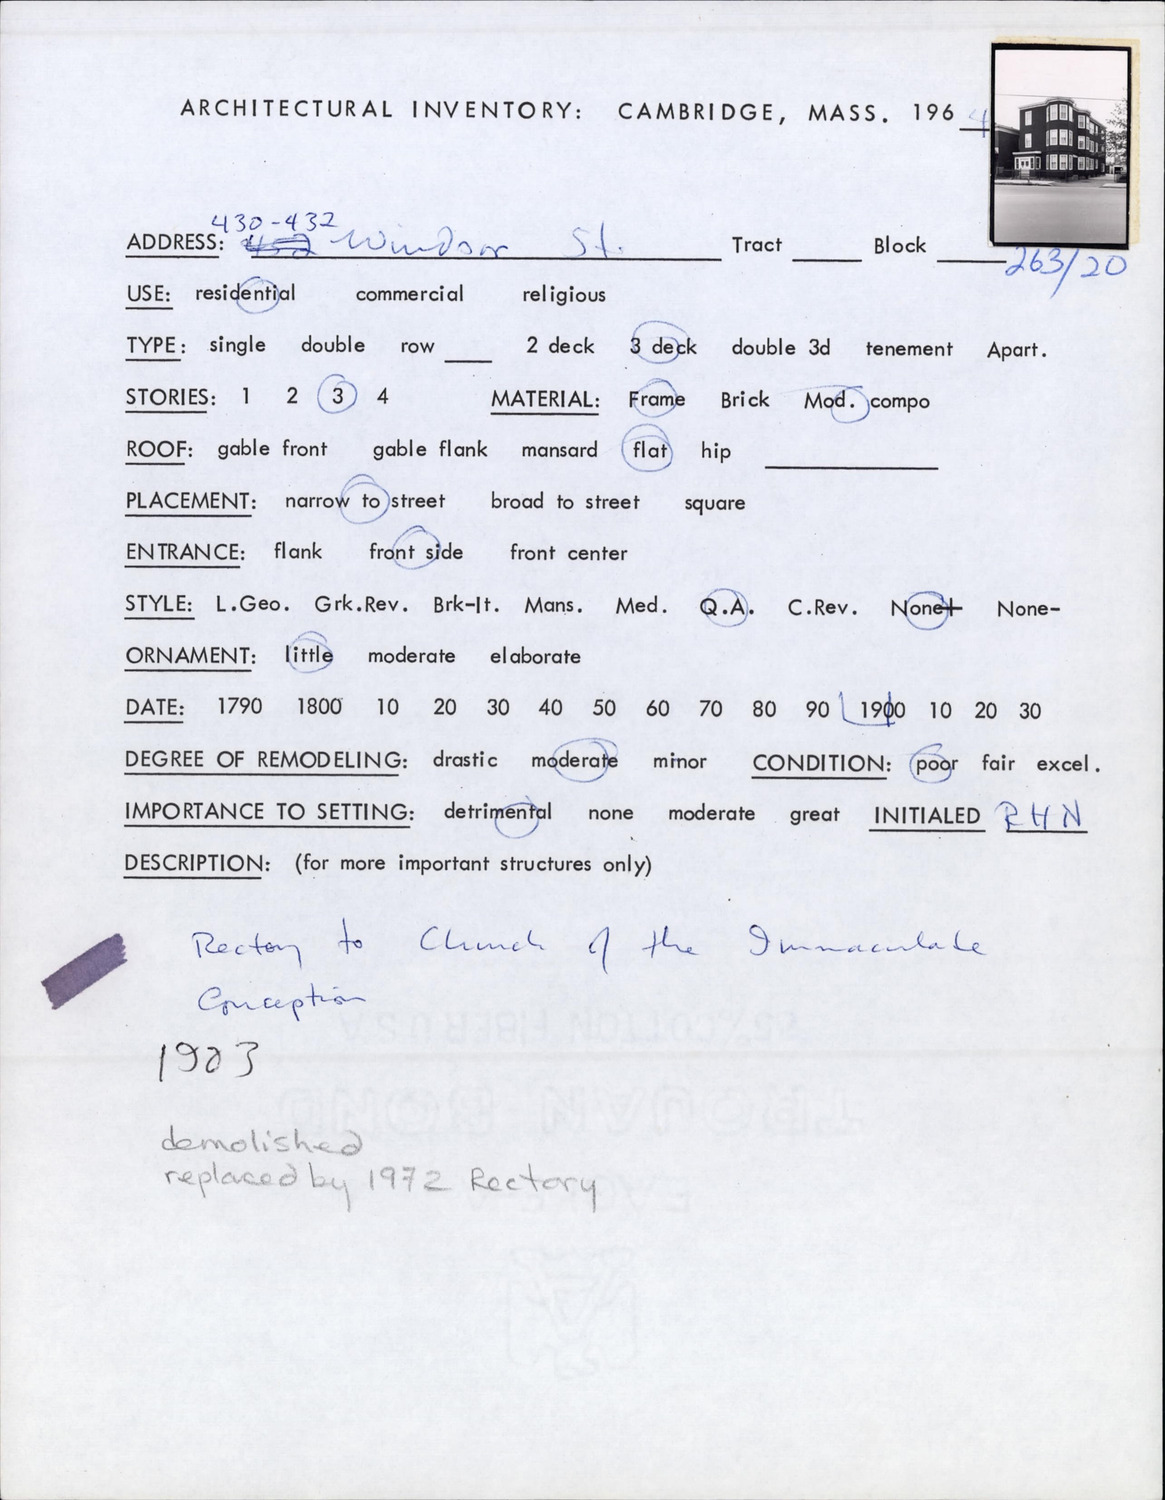 ARCHITECTURAL INVENTORY: CAMBRIDGE, MASS. 1964
430-432
ADDRESS: 432 Windsor St. Tract ____ Block ____
263/20
USE: residential commercial religious
TYPE: single double row ____ 2 deck 3 deck double 3d tenement Apart.
STORIES: 1 2 3 4 MATERIAL: Frame Brick Mod. compo
ROOF: gable front gable flank mansard flat hip ____
PLACEMENT: narrow to street broad to street square
ENTRANCE: flank front side front center
STYLE: L.Geo. Grk.Rev. Brk-It. Mans. Med. Q.A. C.Rev. None+ None-
ORNAMENT: little moderate elaborate
DATE: 1790 1800 10 20 30 40 50 60 70 80 90 1900 10 20 30
DEGREE OF REMODELING: drastic moderate minor CONDITION: poor fair excel.
IMPORTANCE TO SETTING: detrimental none moderate great INITIALED RHN
DESCRIPTION: (for more important structures only)
Rectory to Church of the Immaculate
Conception
1903
demolished
replaced by 1972 Rectory